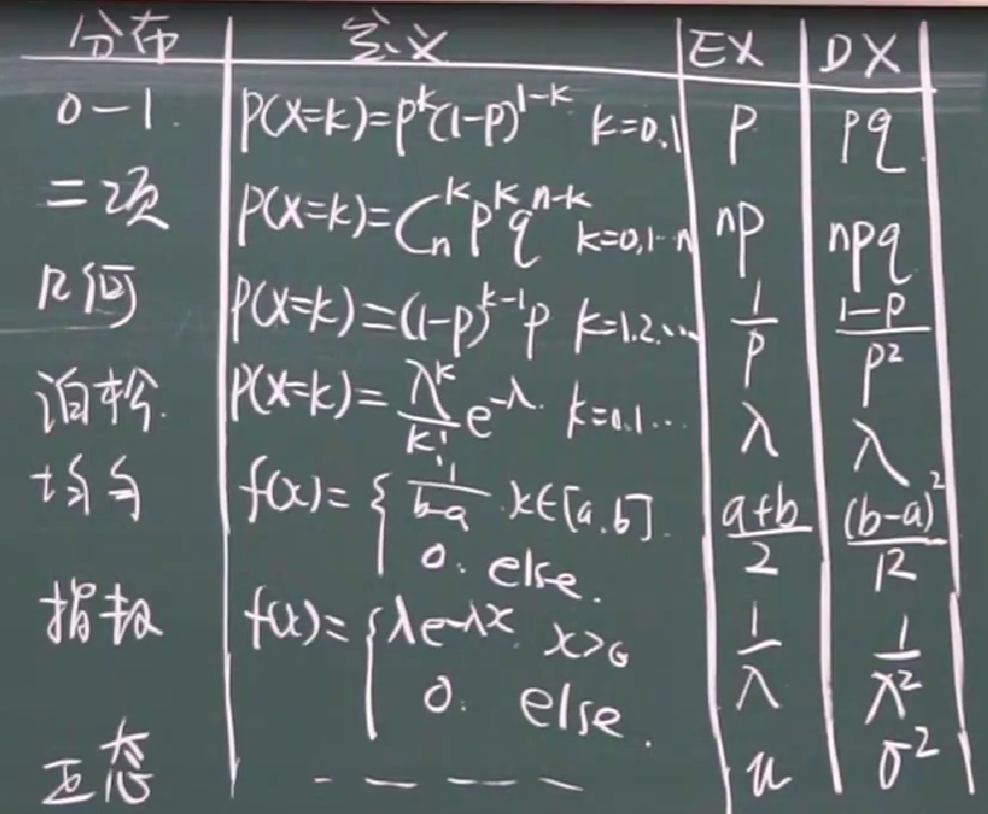 分布 定义 EX DX
0-1. P(X=k)=p^k(1-p)^{1-k} k=0.1 p pq
二项 P(X=k)=C_n^k p^k q^{n-k} k=0,1...n np npq
几何 P(X=k)=(1-p)^{k-1}p k=1.2.... \frac{1}{p} \frac{1-p}{p^2}
泊松. P(X=k)=\frac{λ^k}{k!}e^{-λ}. k=0.1... λ λ
均匀 f(x)={\frac{1}{b-a} x∈[a.b]. \frac{a+b}{2} \frac{(b-a)^2}{12}
0. else.
指数 f(x)={λe^{-λx}. x>0 \frac{1}{λ} \frac{1}{λ^2}
0. else.
正态 ---- u σ^2